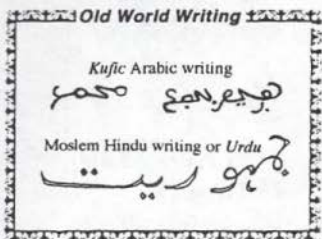 Old World Writing
Kufic Arabic writing
Moslem Hindu writing or Urdu
جمہوریت